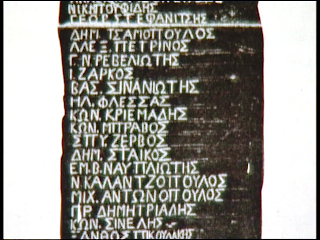 ΝΙΚ. ΜΠΟΥΦΙΔΗΣ
ΓΕΩΡ. ΣΤΕΦΑΝΙΤΣΗΣ
ΔΗΜ. ΤΣΑΜΟΠΟΥΛΟΣ
ΑΛΕΞ. ΠΕΤΡΙΝΟΣ
Γ. Ν. ΡΕΒΕΛΙΩΤΗΣ
Ι. ΖΑΡΚΟΣ
ΒΑΣ. ΣΙΝΑΝΙΩΤΗΣ
ΗΛ. ΦΛΕΣΣΑΣ
ΚΩΝ. ΚΡΙΕΜΑΔΗΣ
ΚΩΝ. ΜΠΡΑΒΟΣ
ΣΠΥ. ΖΕΡΒΟΣ
ΔΗΜ. ΣΤΑΙΚΟΣ
ΕΜ. Β. ΝΑΥΠΛΙΩΤΗΣ
Ν. ΚΑΛΑΝΤΖΟΠΟΥΛΟΣ
ΜΙΧ. ΑΝΤΩΝΟΠΟΥΛΟΣ
ΠΡ. ΔΗΜΗΤΡΙΑΔΗΣ
ΚΩΝ. ΣΙΝΕΛΗΣ
ΞΑΝΘΟΣ